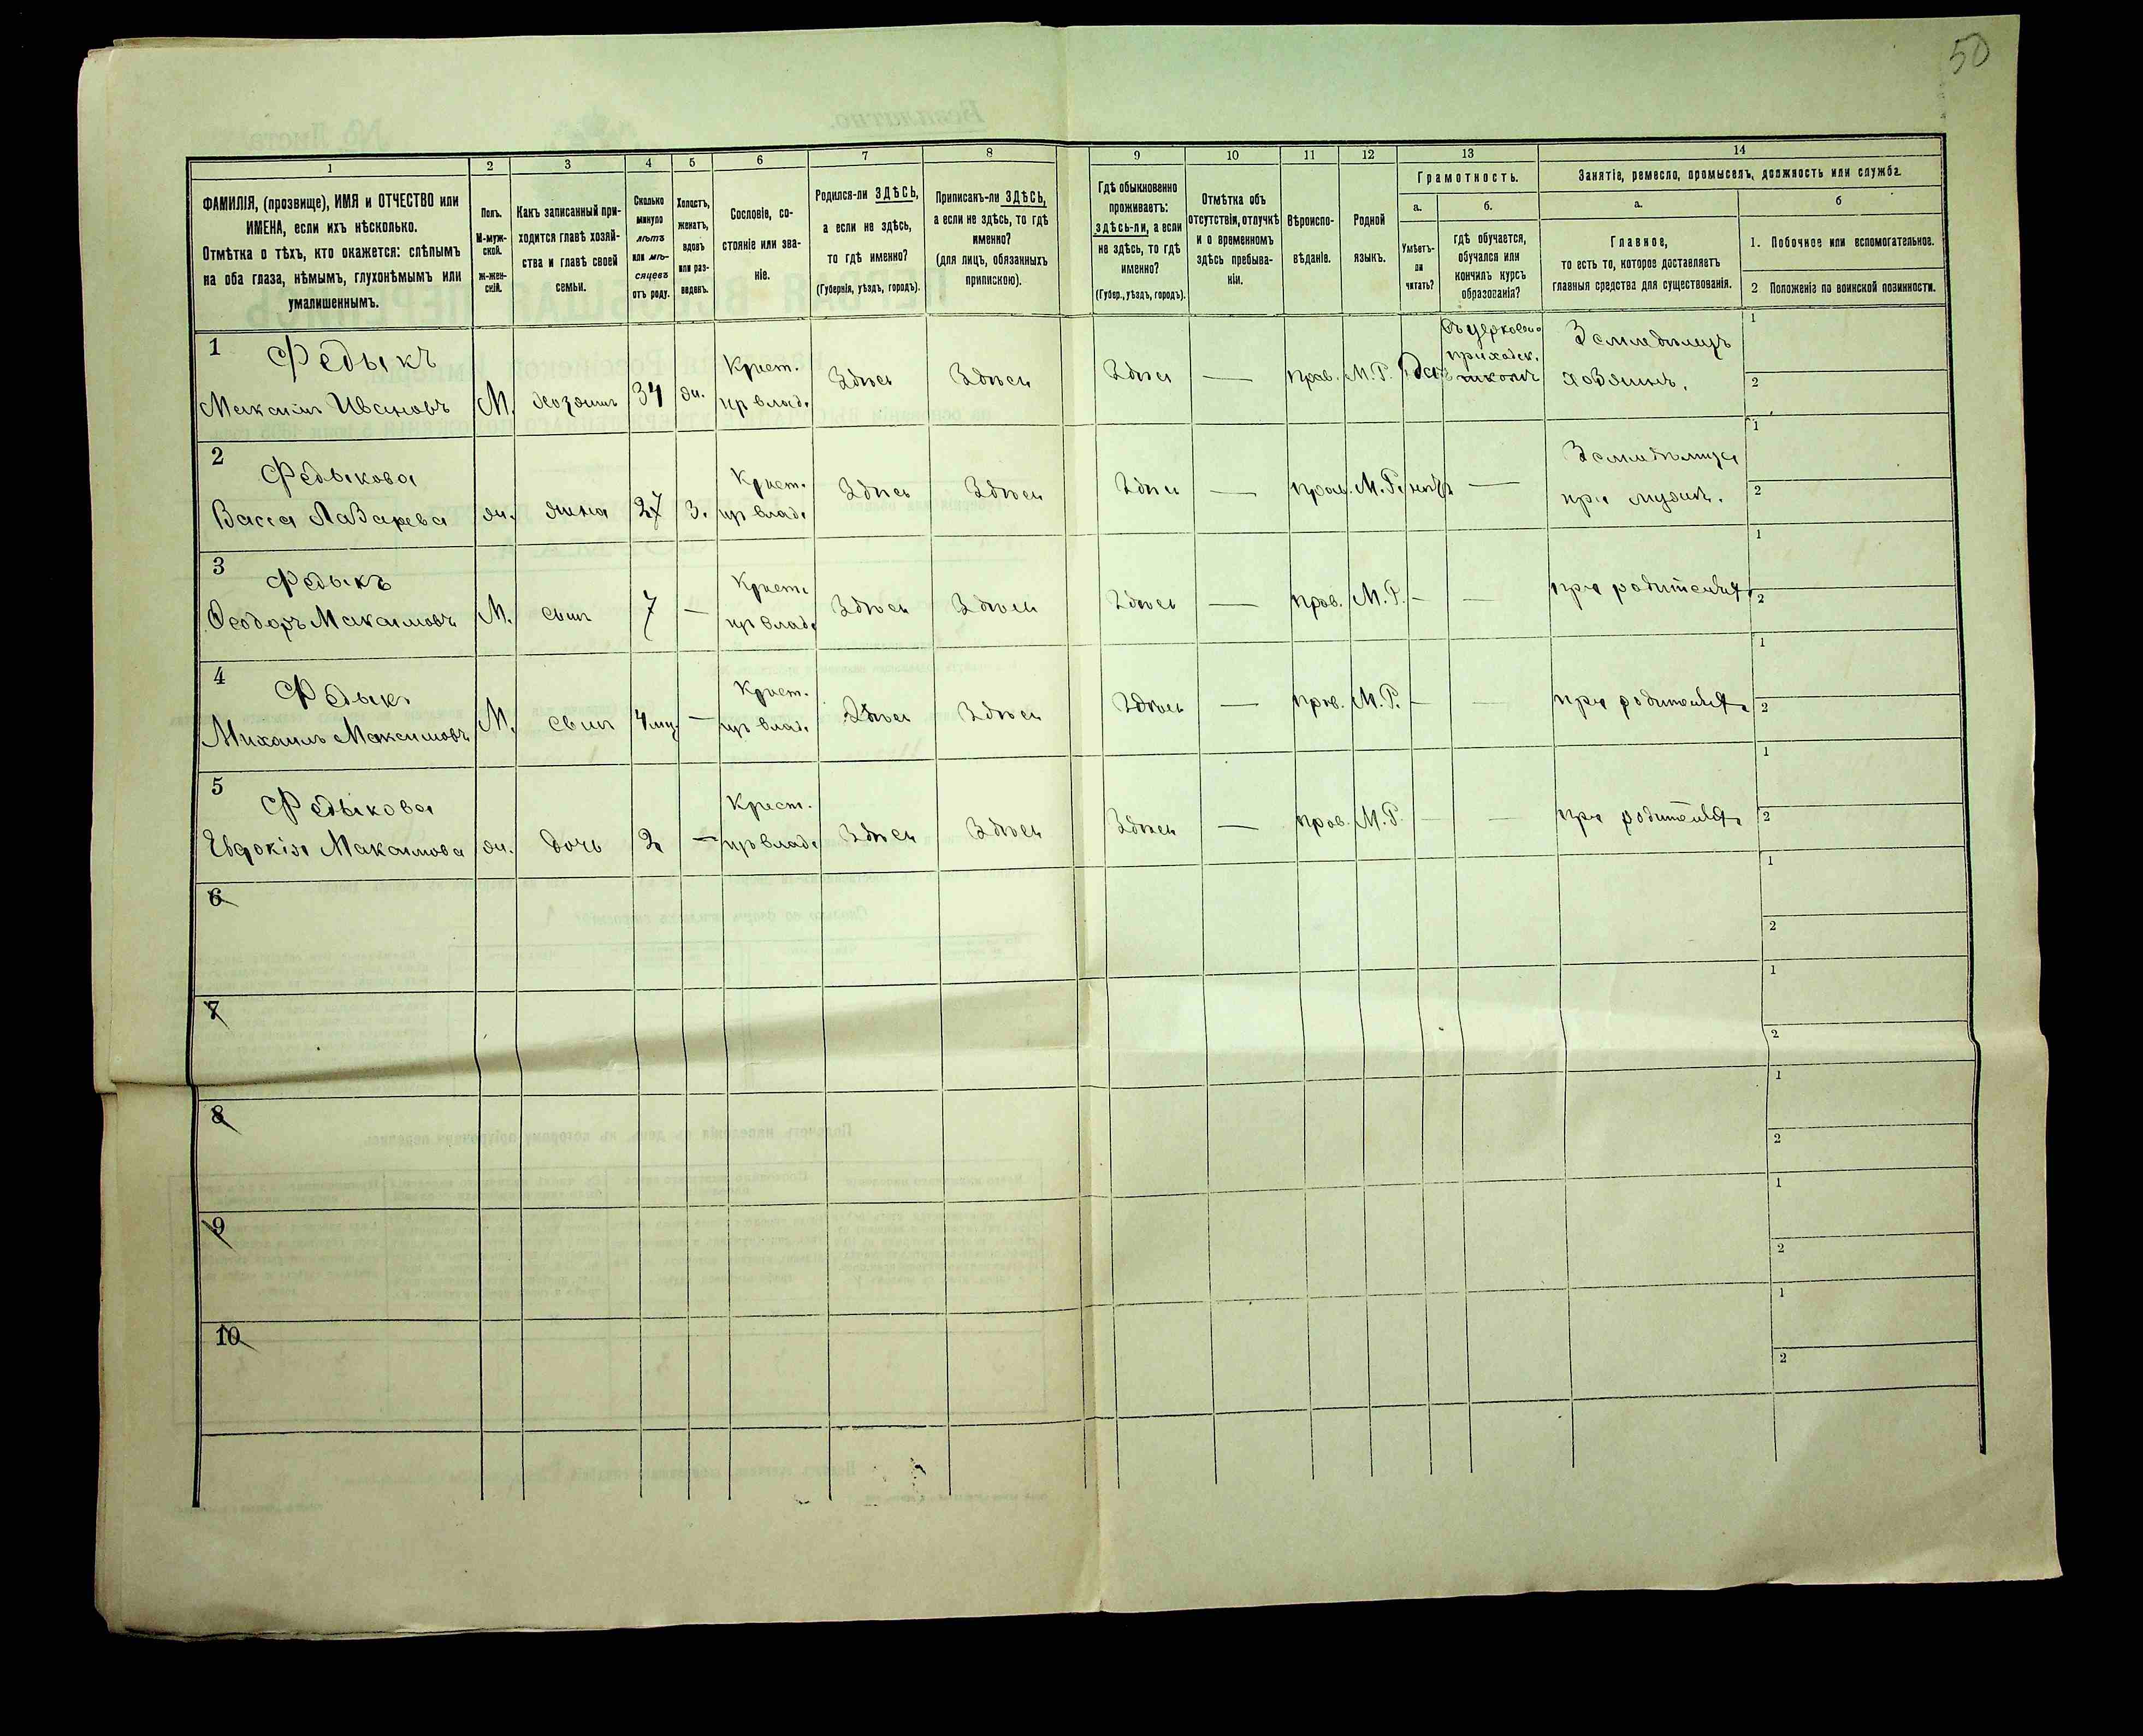 50
1
2
3
4
5
6
7
8
9
10
11
12
13
14
ФАМИЛІЯ, (прозвище), ИМЯ и ОТЧЕСТВО или
ИМЕНА, если ихъ нѣсколько.
Отмѣтка о тѣхъ, кто окажется: слѣпымъ
на оба глаза, нѣмымъ, глухонѣмымъ или
умалишеннымъ.
Полъ.
М-муж-
ской.
ж-жен-
скій.
Какъ записанный при-
ходится главѣ хозяй-
ства и главѣ своей
семьи.
Сколько
минуло
лѣтъ
или мѣ-
сяцевъ
отъ роду.
Холостъ,
женатъ,
вдовъ
или раз-
веденъ.
Сословіе, со-
стояніе или зва-
ніе.
Родился-ли ЗДѢСЬ,
а если не здѣсь,
то гдѣ именно?
(Губернія, уѣздъ, городъ).
Приписанъ-ли ЗДѢСЬ,
а если не здѣсь, то гдѣ
именно?
(для лицъ, обязанныхъ
припискою).
Гдѣ обыкновенно
проживаетъ:
здѣсь-ли, а если
не здѣсь, то гдѣ
именно?
(Губер., уѣздъ, городъ).
Отмѣтка объ
отсутствіи, отлучкѣ
и о временномъ
здѣсь пребыва-
ніи.
Вѣроиспо-
вѣданіе.
Родной
языкъ.
Грамотность.
а.
б.
Умѣетъ-
ли
читать?
гдѣ обучается,
обучался или
кончилъ курсъ
образованія?
Занятіе, ремесло, промыселъ, должность или служба.
а.
б
Главное,
то есть то, которое доставляетъ
главныя средства для существованія.
1. Побочное или вспомогательное.
2 Положеніе по воинской повинности.
1
Федыкъ
Максимъ Ивановъ
М.
хозяинъ
34
ж.
Крест.
пр влад.
Здѣсь
Здѣсь
Здѣсь
—
прав.
М.Р.
Да
въ церковно
приходск.
школѣ
Земледѣлецъ
хозяинъ.
1
2
2
Федыкова
Васса Лазарева
ж.
жена
27
з.
Крест.
пр влад.
Здѣсь
Здѣсь
Здѣсь
—
прав.
М.Р.
нѣтъ
—
Земледѣлица
при мужѣ.
1
2
3
Федыкъ
Ѳеодоръ Максимовъ
М.
сынъ
7
—
Крест.
пр влад.
Здѣсь
Здѣсь
Здѣсь
—
прав.
М.Р.
—
—
при родителях
1
2
4
Федыкъ
Михаилъ Максимовъ
М.
сынъ
4 мц
—
Крест.
пр влад.
Здѣсь
Здѣсь
Здѣсь
—
прав.
М.Р.
—
—
при родителях
1
2
5
Федыкова
Евдокія Максимова
ж.
дочь
2
—
Крест.
пр влад.
Здѣсь
Здѣсь
Здѣсь
—
прав.
М.Р.
—
—
при родителях
1
2
6
1
2
7
1
2
8
1
2
9
1
2
10
1
2